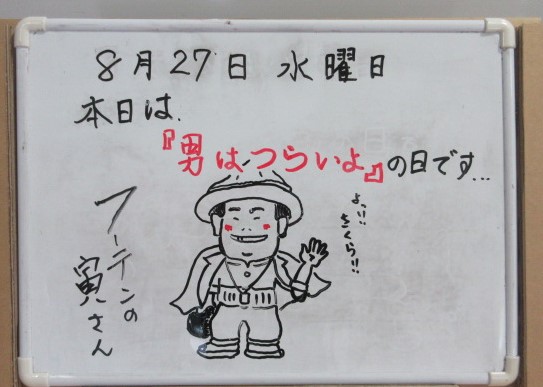 8月27日 水曜日
本日は、
『男はつらいよ』の日です…
よっ!!
さくら!!
フーテンの
寅さん